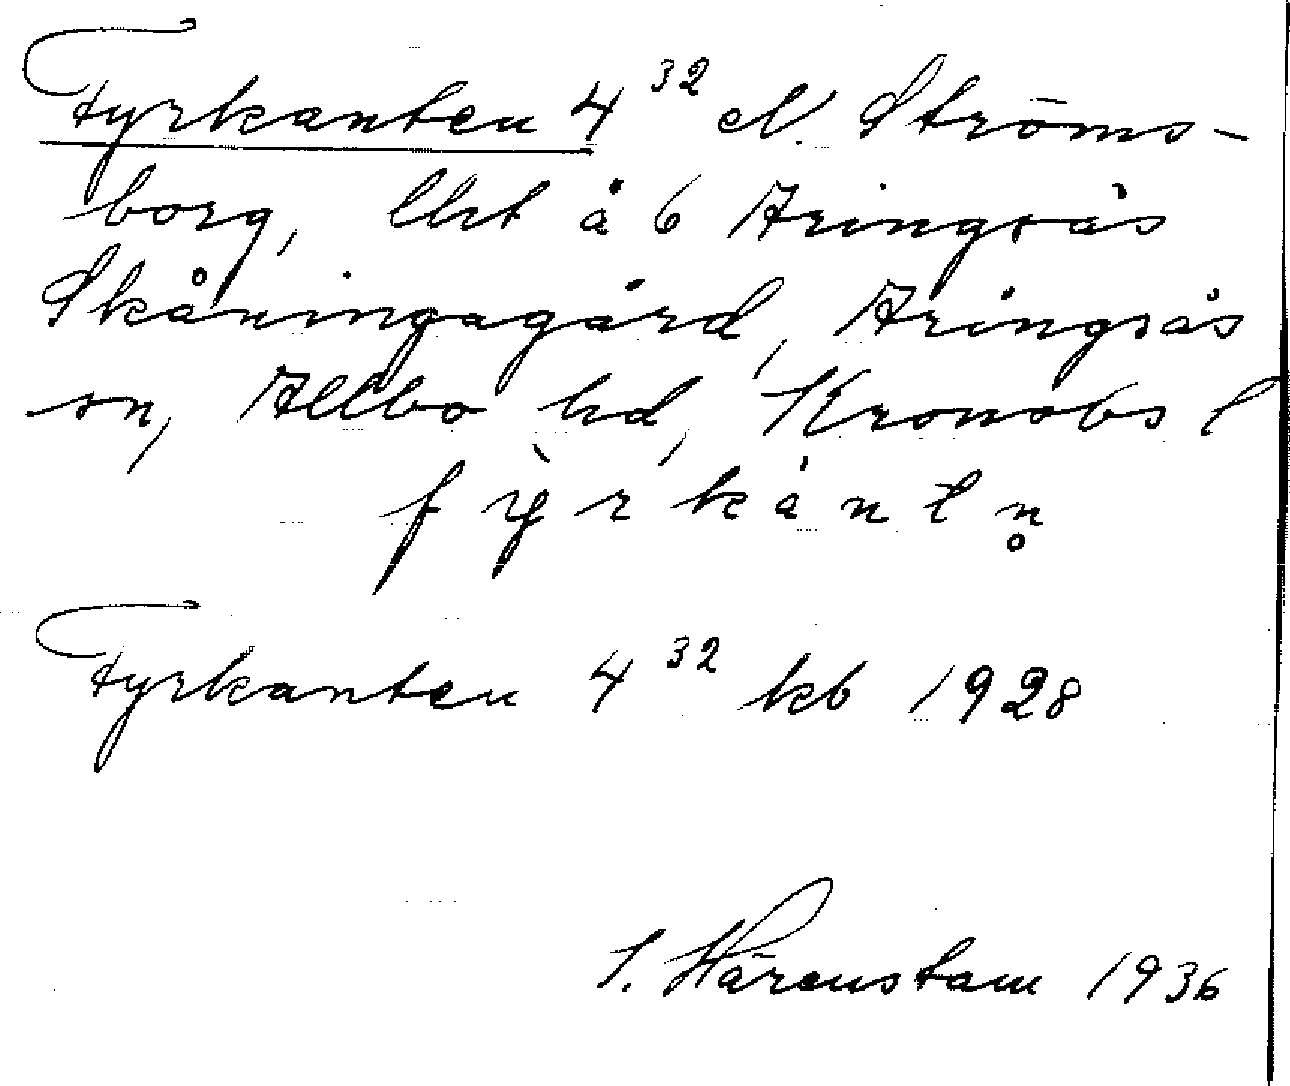 Fyrkanten 4³² el. Ströms-
borg, lht å 6 Aringsås
Skåningagård, Aringsås
sn, Allbo hd, Kronobs l
fỳrkántn̥
Fyrkanten 4³² kb 1928
S. Härenstam 1936